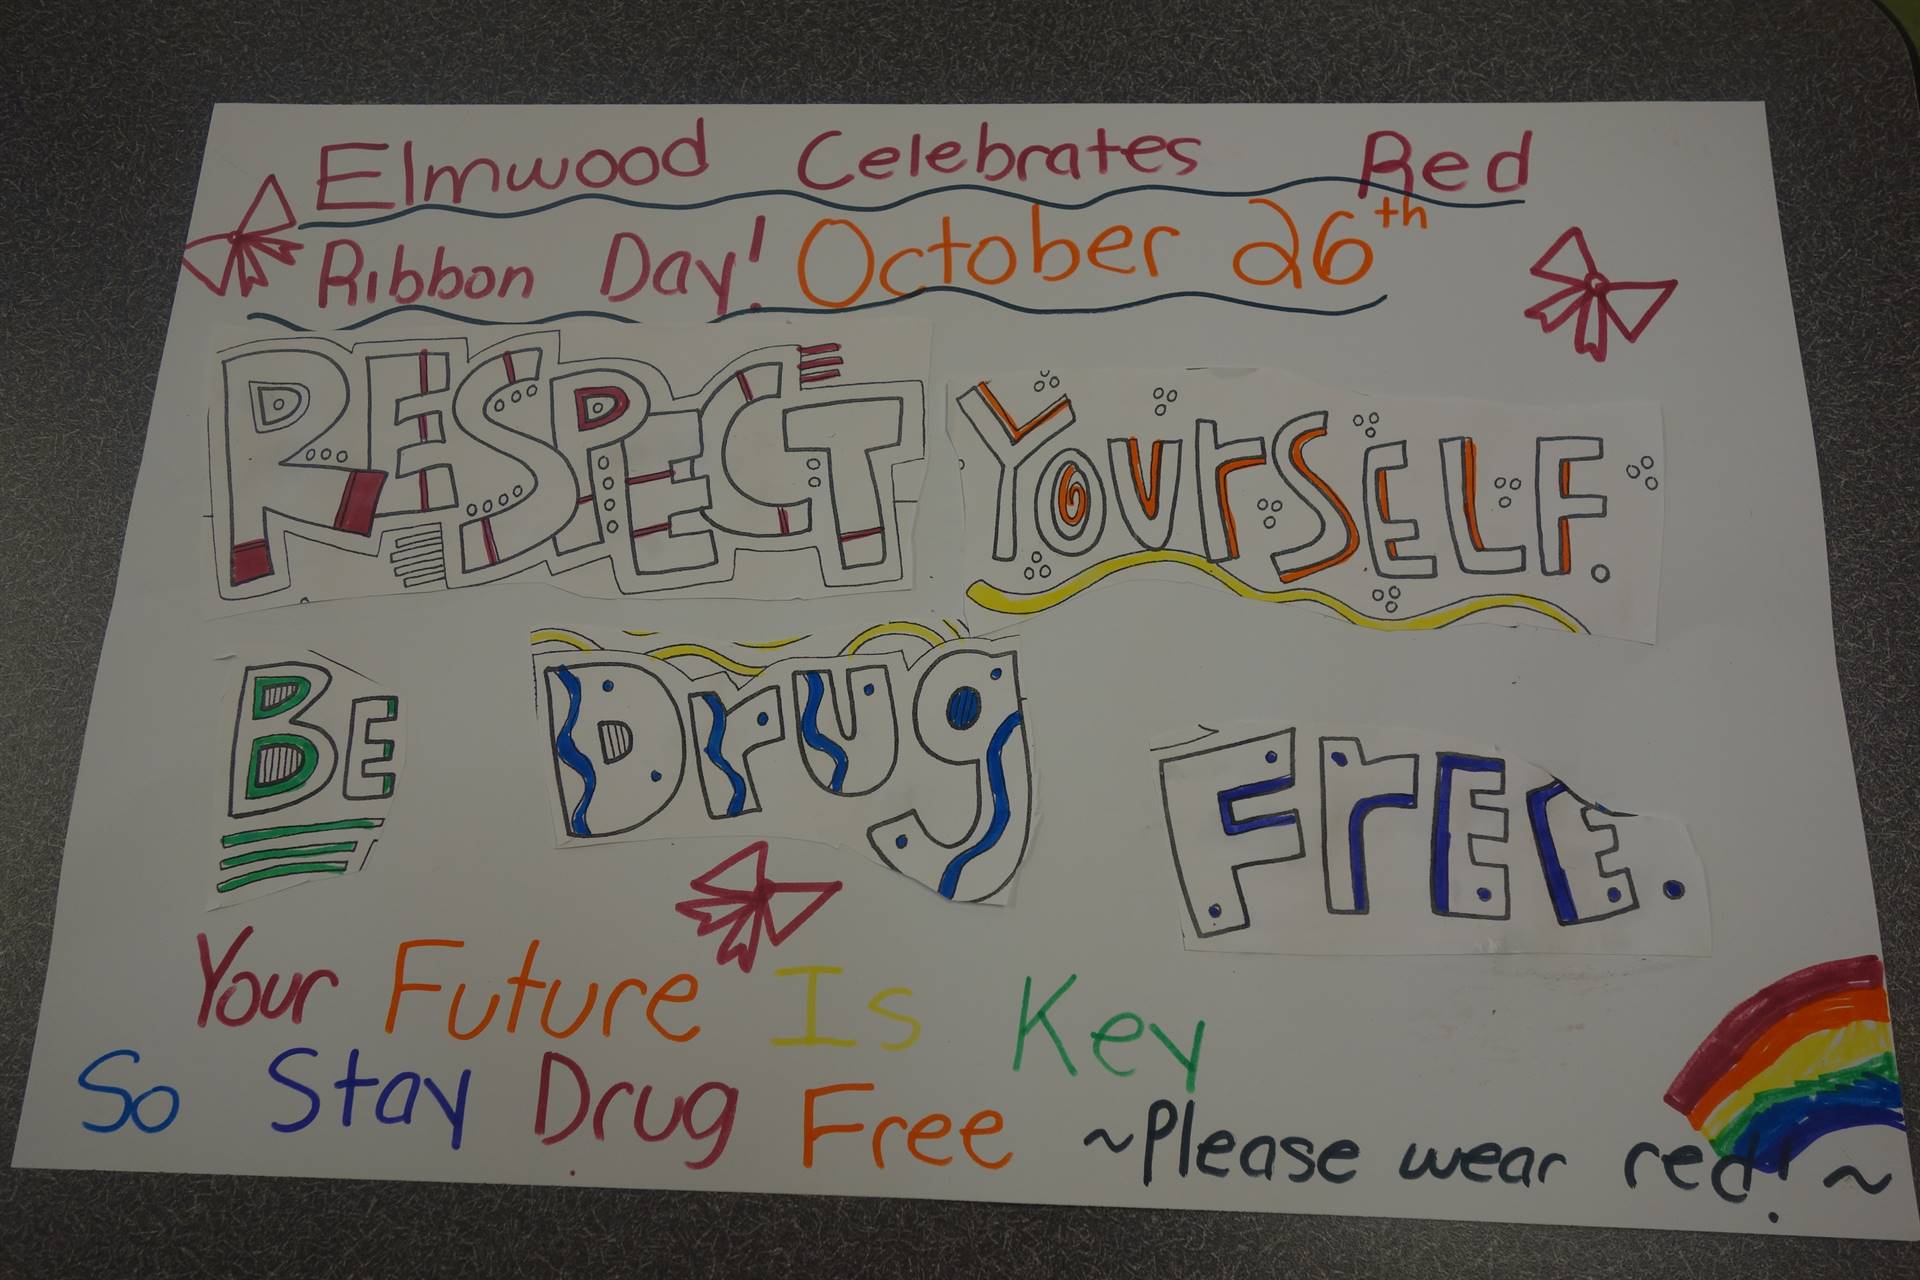 Elmwood Celebrates Red
Ribbon Day! October 26th
RESPECT YOurSELF.
BE Drug FrEE.
Your Future Is Key
So Stay Drug Free ~Please wear red!~